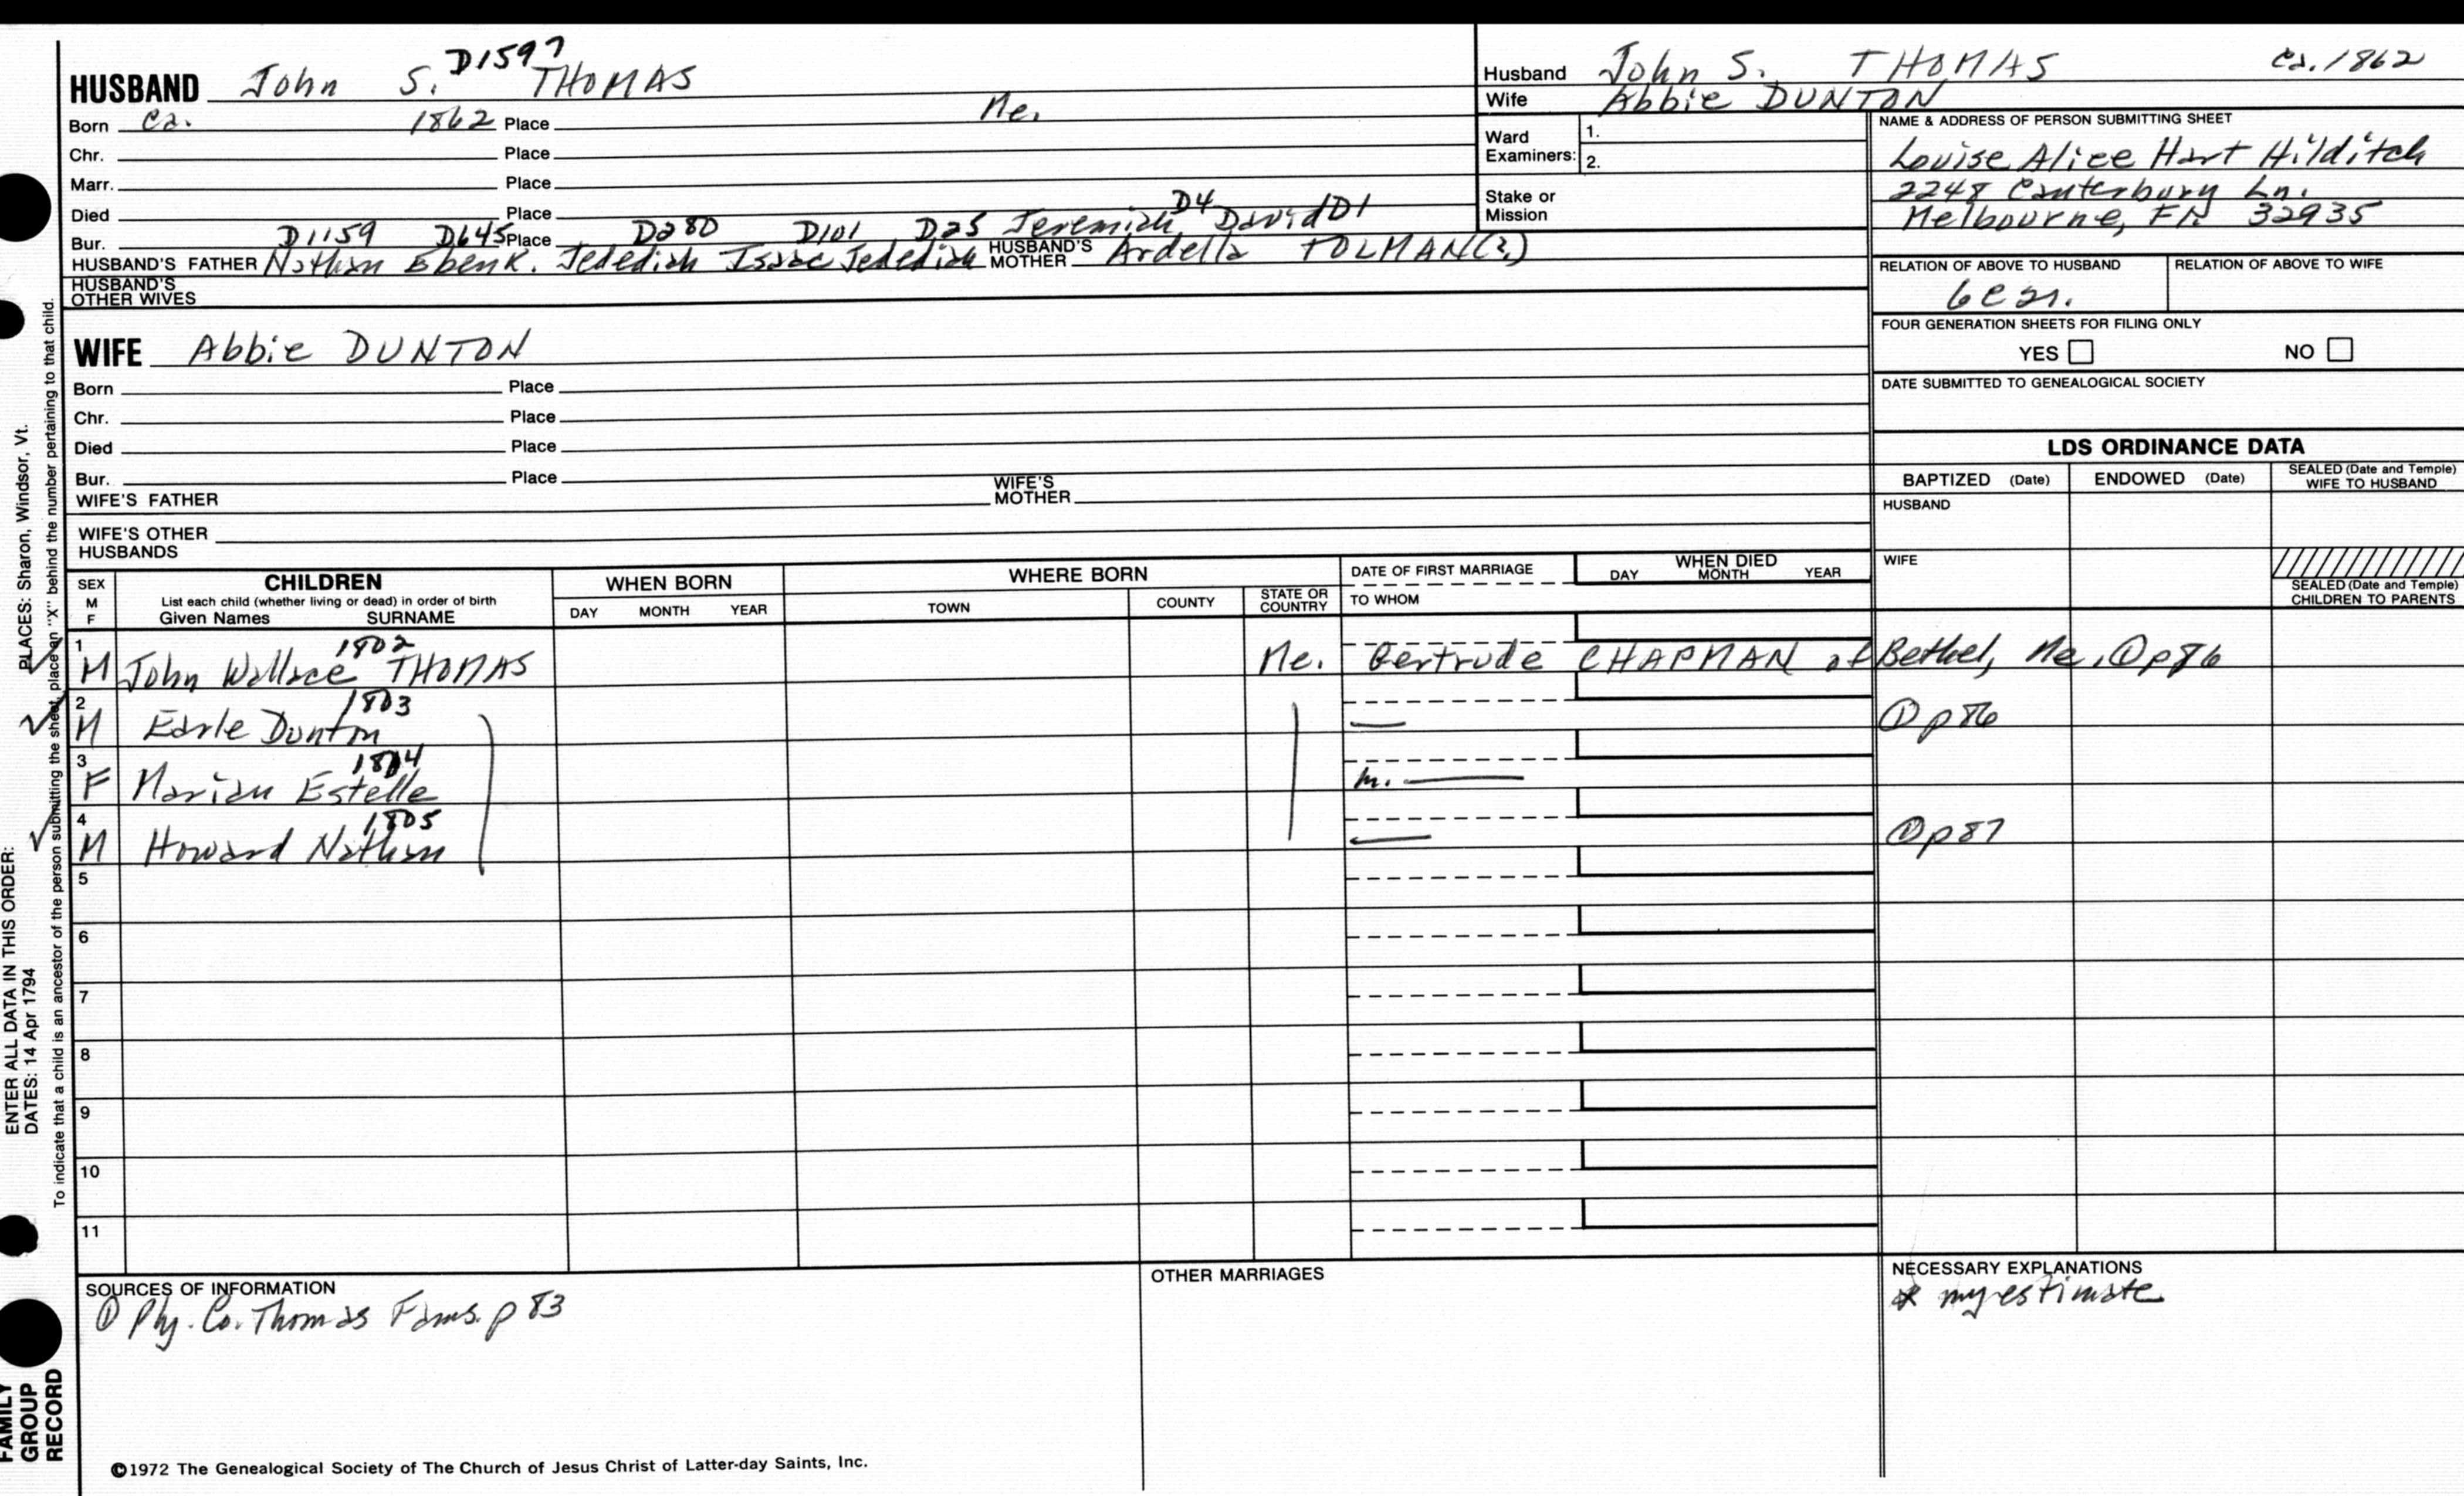 D1597
HUSBAND John S. THOMAS
Born ca. 1862 Place Me.
Chr. Place
Marr. Place
Died Place
Bur. Place
D1159 D645 D280 D101 D25 Jeremiah D4 David D1
HUSBAND'S FATHER Nathan Eben R. Jedediah Isaac Jedediah HUSBAND'S MOTHER Ardella TOLMAN(?)
HUSBAND'S OTHER WIVES
WIFE Abbie DUNTON
Born Place
Chr. Place
Died Place
Bur. Place
WIFE'S FATHER WIFE'S MOTHER
WIFE'S OTHER HUSBANDS
Husband John S. THOMAS ca. 1862
Wife Abbie DUNTON
Ward Examiners: 1.
2.
Stake or Mission
NAME & ADDRESS OF PERSON SUBMITTING SHEET
Louise Alice Hart Hilditch
2248 Canterbury Ln.
Melbourne, 32935
RELATION OF ABOVE TO HUSBAND RELATION OF ABOVE TO WIFE
FOUR GENERATION SHEETS FOR FILING ONLY
YES NO
DATE SUBMITTED TO GENEALOGICAL SOCIETY
LDS ORDINANCE DATA
BAPTIZED (Date) ENDOWED (Date) SEALED (Date and Temple) WIFE TO HUSBAND
HUSBAND
WIFE
SEALED (Date and Temple) CHILDREN TO PARENTS
SEX M F
CHILDREN
List each child (whether living or dead) in order of birth
Given Names SURNAME
WHEN BORN
DAY MONTH YEAR
WHERE BORN
TOWN COUNTY STATE OR COUNTRY
DATE OF FIRST MARRIAGE
TO WHOM
WHEN DIED
DAY MONTH YEAR
1802
1 M John Wallace THOMAS Me. Gertrude CHAPMAN of Bethel, Me. ① p86
1803
2 M Earle Dunton ① p86
1804
3 F Marian Estelle m.
1805
4 M Howard Nathan ① p87
5
6
7
8
9
10
11
SOURCES OF INFORMATION
① Ply. Co. Thomas Fams. p 83
OTHER MARRIAGES
NECESSARY EXPLANATIONS
* my estimate
©1972 The Genealogical Society of The Church of Jesus Christ of Latter-day Saints, Inc.
ENTER ALL DATA IN THIS ORDER:
DATES: 14 Apr 1794
PLACES: Sharon, Windsor, Vt.
To indicate that a child is an ancestor of the person submitting the sheet, place an "X" behind the number pertaining to that child.
FAMILY
GROUP
RECORD